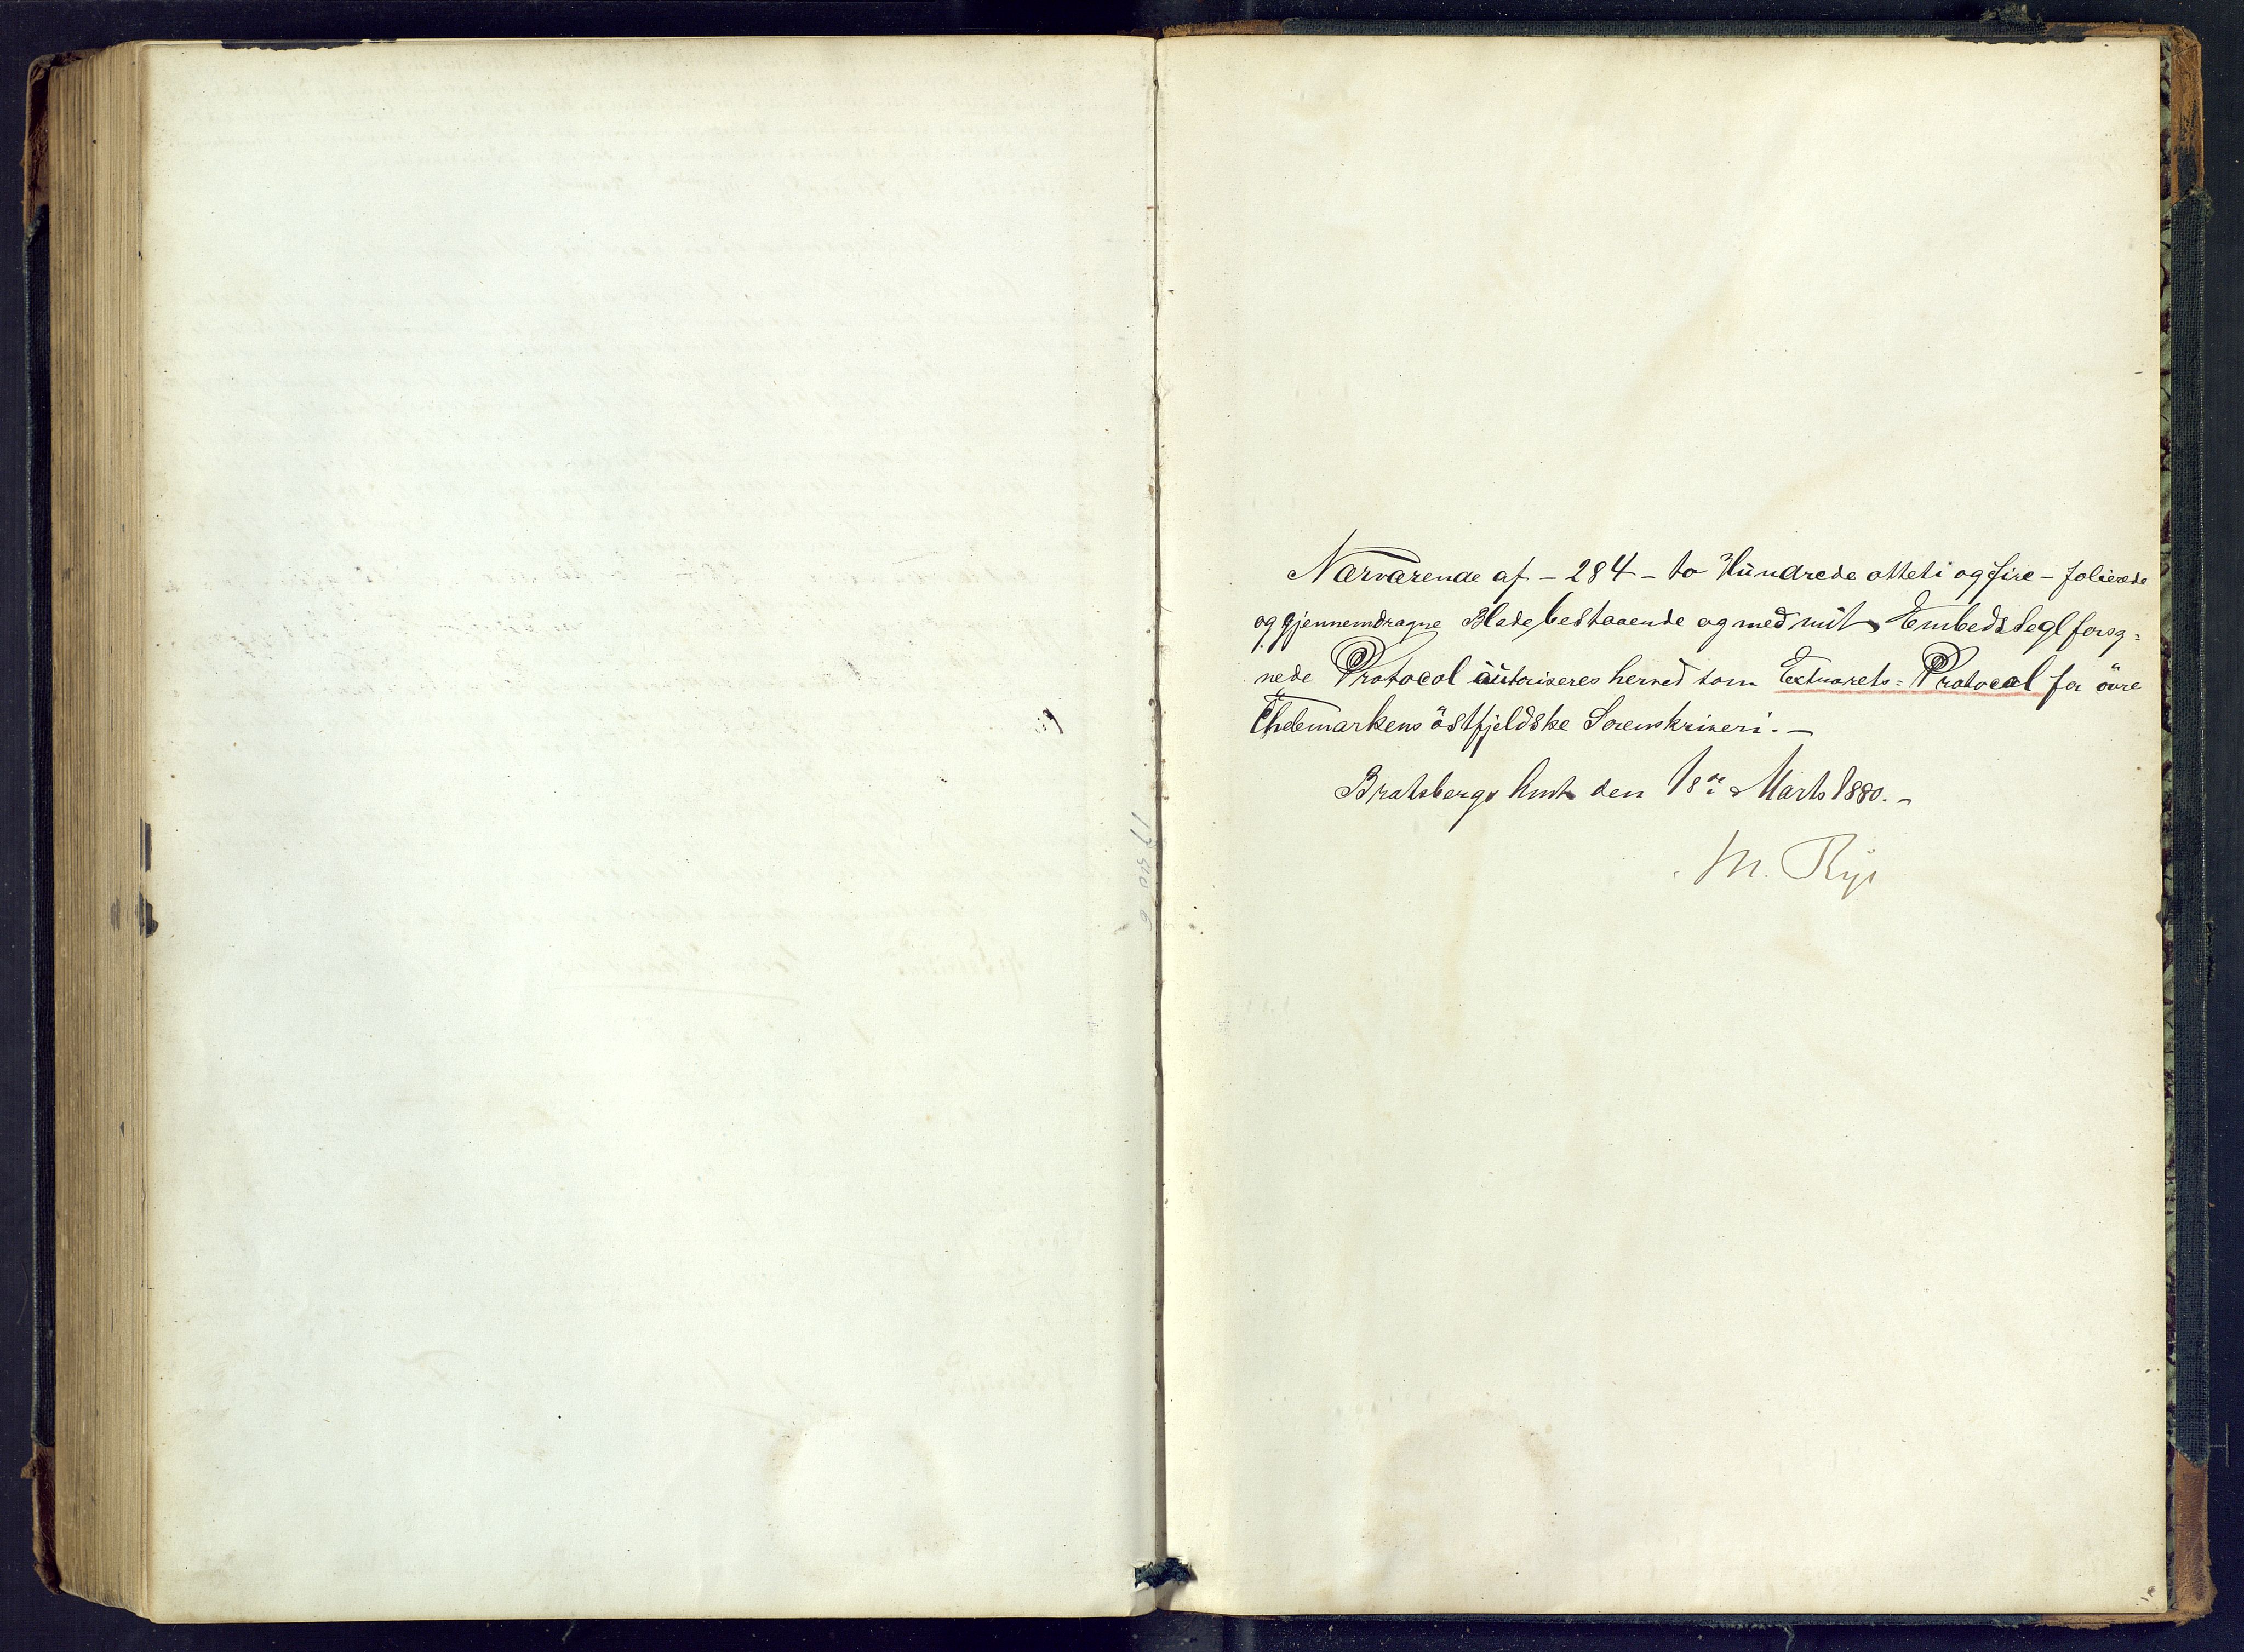 Nærværende af - 284 - to Hündrede otteti og fire - folierede
og gjennemdragne Blade bestaaende og med mit Embedssegl forsy=
nede Protocol aütoriseres herved som Extrarets= Protocol for övre
Thelemarkens östfjeldske Sorenskriveri. -
Bratsbergs Amt den 18de Marts 1880. -
M. Rye